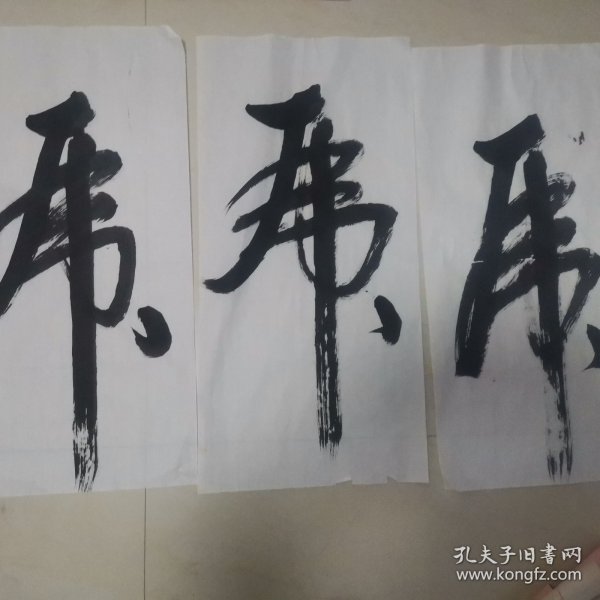 虎 虎 虎
孔夫子旧书网
www.kongfz.com